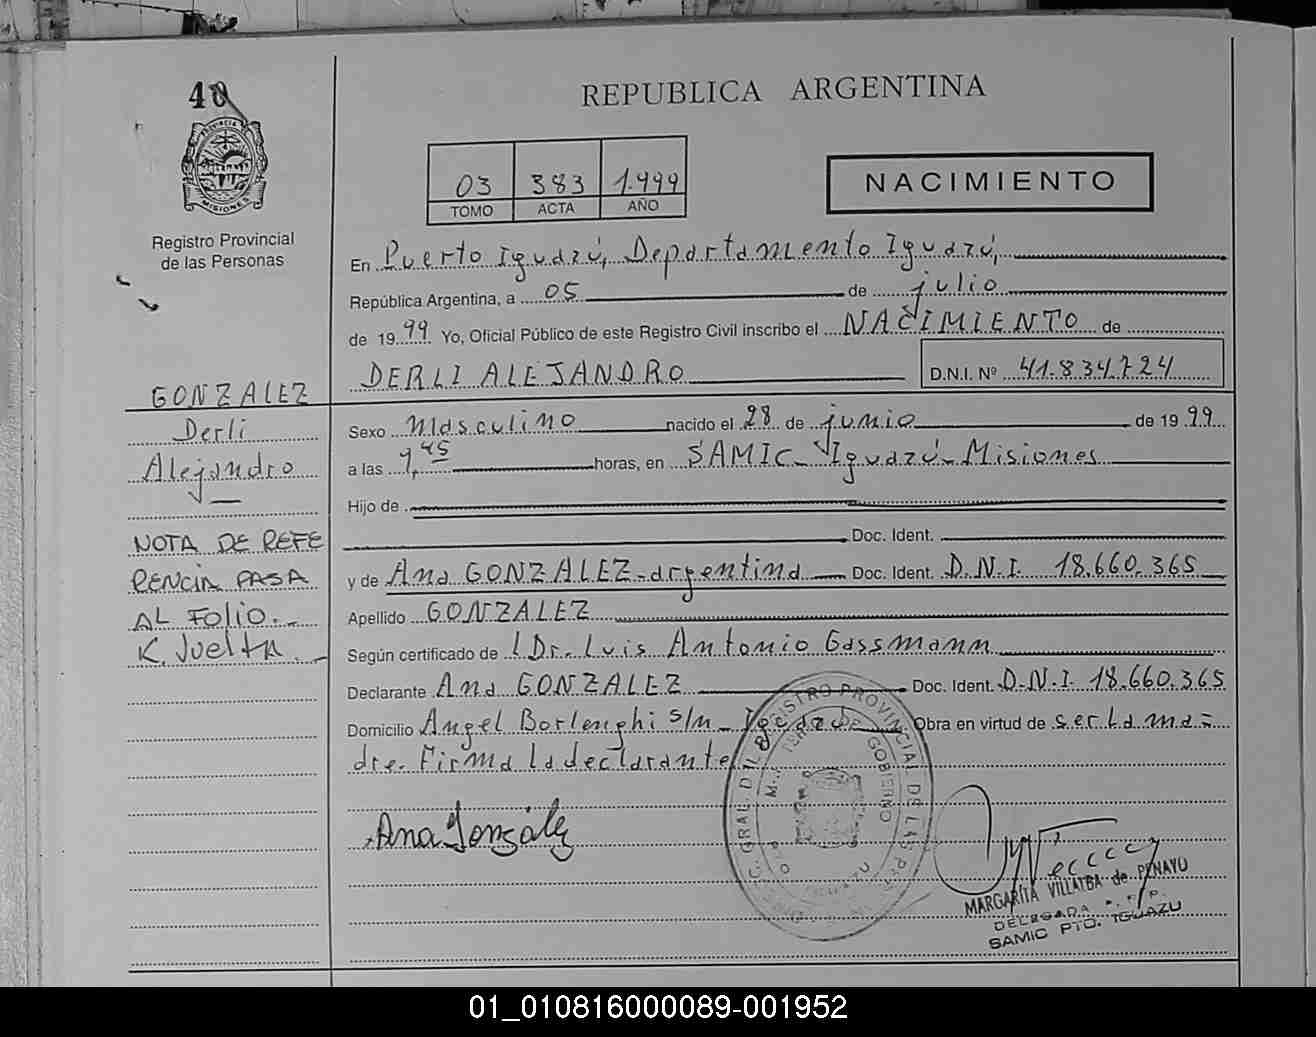 40
PROVINCIA DE
MISIONES
Registro Provincial
de las Personas
REPUBLICA ARGENTINA
03 383 1.999
TOMO ACTA AÑO
NACIMIENTO
En Puerto Iguazú, Departamento Iguazú,
República Argentina, a 05 de julio
de 1999 Yo, Oficial Público de este Registro Civil inscribo el NACIMIENTO de
DERLI ALEJANDRO D.N.I. Nº 41.834.724
GONZALEZ
Derli
Alejandro
NOTA DE REFE
RENCIA PASA
AL FOLIO.
Vuelta
Sexo Masculino nacido el 28 de junio de 1999
a las 9,45 horas, en SAMIC_Iguazú_Misiones
Hijo de
Doc. Ident.
y de Ana GONZALEZ-argentina Doc. Ident. D.N.I. 18.660.365
Apellido GONZALEZ
Según certificado de l Dr. Luis Antonio Gassmann
Declarante Ana GONZALEZ Doc. Ident. D.N.I. 18.660.365
Domicilio Angel Borlenghi s/n_Iguazú Obra en virtud de ser la ma=
dre. Firma la declarante
Ana González
REGISTRO PROVINCIAL DE LAS
GOBIERNO
MARGARITA VILLALBA de PENAYO
DELEGADA R.P.P.
SAMIC PTO. IGUAZU
01_010816000089-001952